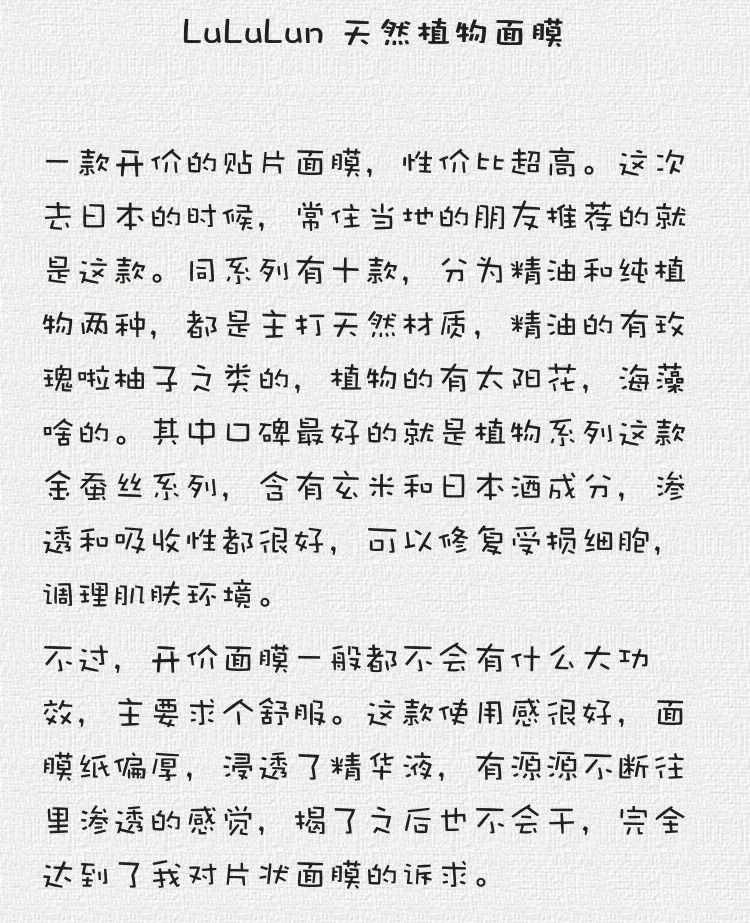 LuLuLun 天然植物面膜
一款开价的贴片面膜，性价比超高。这次
去日本的时候，常住当地的朋友推荐的就
是这款。同系列有十款，分为精油和纯植
物两种，都是主打天然材质，精油的有玫
瑰啦柚子之类的，植物的有太阳花，海藻
啥的。其中口碑最好的就是植物系列这款
金蚕丝系列，含有玄米和日本酒成分，渗
透和吸收性都很好，可以修复受损细胞，
调理肌肤环境。
不过，开价面膜一般都不会有什么大功
效，主要求个舒服。这款使用感很好，面
膜纸偏厚，浸透了精华液，有源源不断往
里渗透的感觉，揭了之后也不会干，完全
达到了我对片状面膜的诉求。